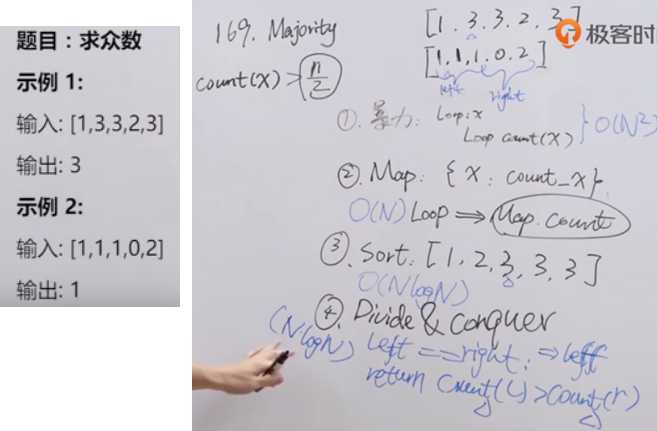 题目：求众数
示例 1:
输入: [1,3,3,2,3]
输出: 3
示例 2:
输入: [1,1,1,0,2]
输出: 1
169. Majority
count(x) > n/2
[1.3.3.2.3]
[1.1.1.0.2]
left right
极客时
①. 暴力: Loop: x
Loop count(x) } O(N²)
②. Map: {x: count_x}.
O(N) Loop ⇒ Map.count
③. Sort: [1, 2, 3, 3, 3]
O(NlogN)
④. Divide & Conquer
(NlogN) left == right: ⇒ left
return count(L) > count(r)